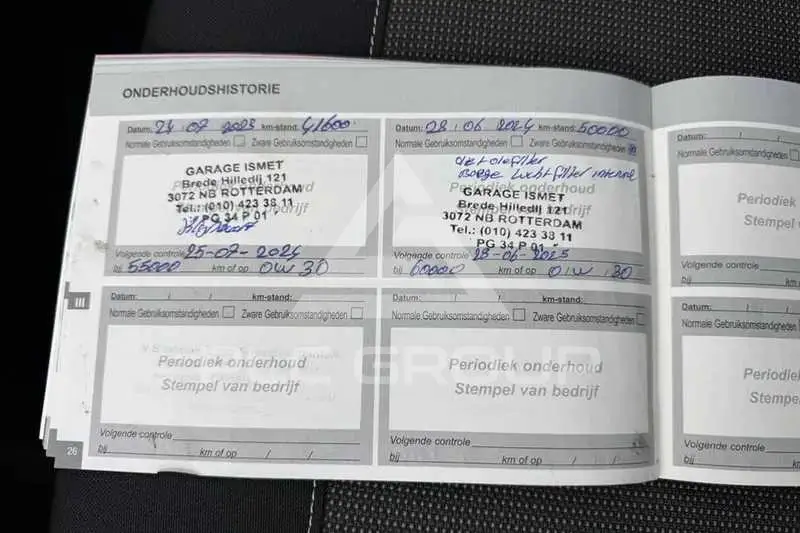 ONDERHOUDSHISTORIE
Datum: 24 07 2023 km-stand: 41600
Normale Gebruiksomstandigheden Zware Gebruiksomstandigheden
Periodiek onderhoud
GARAGE ISMET
Brede Hilledij 121
3072 NB ROTTERDAM
Tel.: (010) 423 38 11
PG 34 P 01
Volgende controle 25-07-2024
bij 55000 km of op 0W30
Datum: 28 06 2024 km-stand: 50000
Normale Gebruiksomstandigheden Zware Gebruiksomstandigheden
Periodiek onderhoud
GARAGE ISMET
Brede Hilledij 121
3072 NB ROTTERDAM
Tel.: (010) 423 38 11
PG 34 P 01
Volgende controle 28-06-2025
bij 60000 km of op 0W30
Datum: / /
Normale Gebruiksomstandigheden
Periodiek
Stempel van
Volgende controle
bij
III
Datum: / / km-stand:
Normale Gebruiksomstandigheden Zware Gebruiksomstandigheden
Periodiek onderhoud
Stempel van bedrijf
Volgende controle
bij km of op / /
Datum: / / km-stand:
Normale Gebruiksomstandigheden Zware Gebruiksomstandigheden
Periodiek onderhoud
Stempel van bedrijf
Volgende controle
bij km of op / /
Datum: / /
Normale Gebruiksomstandigheden
Volgende controle
bij
26
GROUP